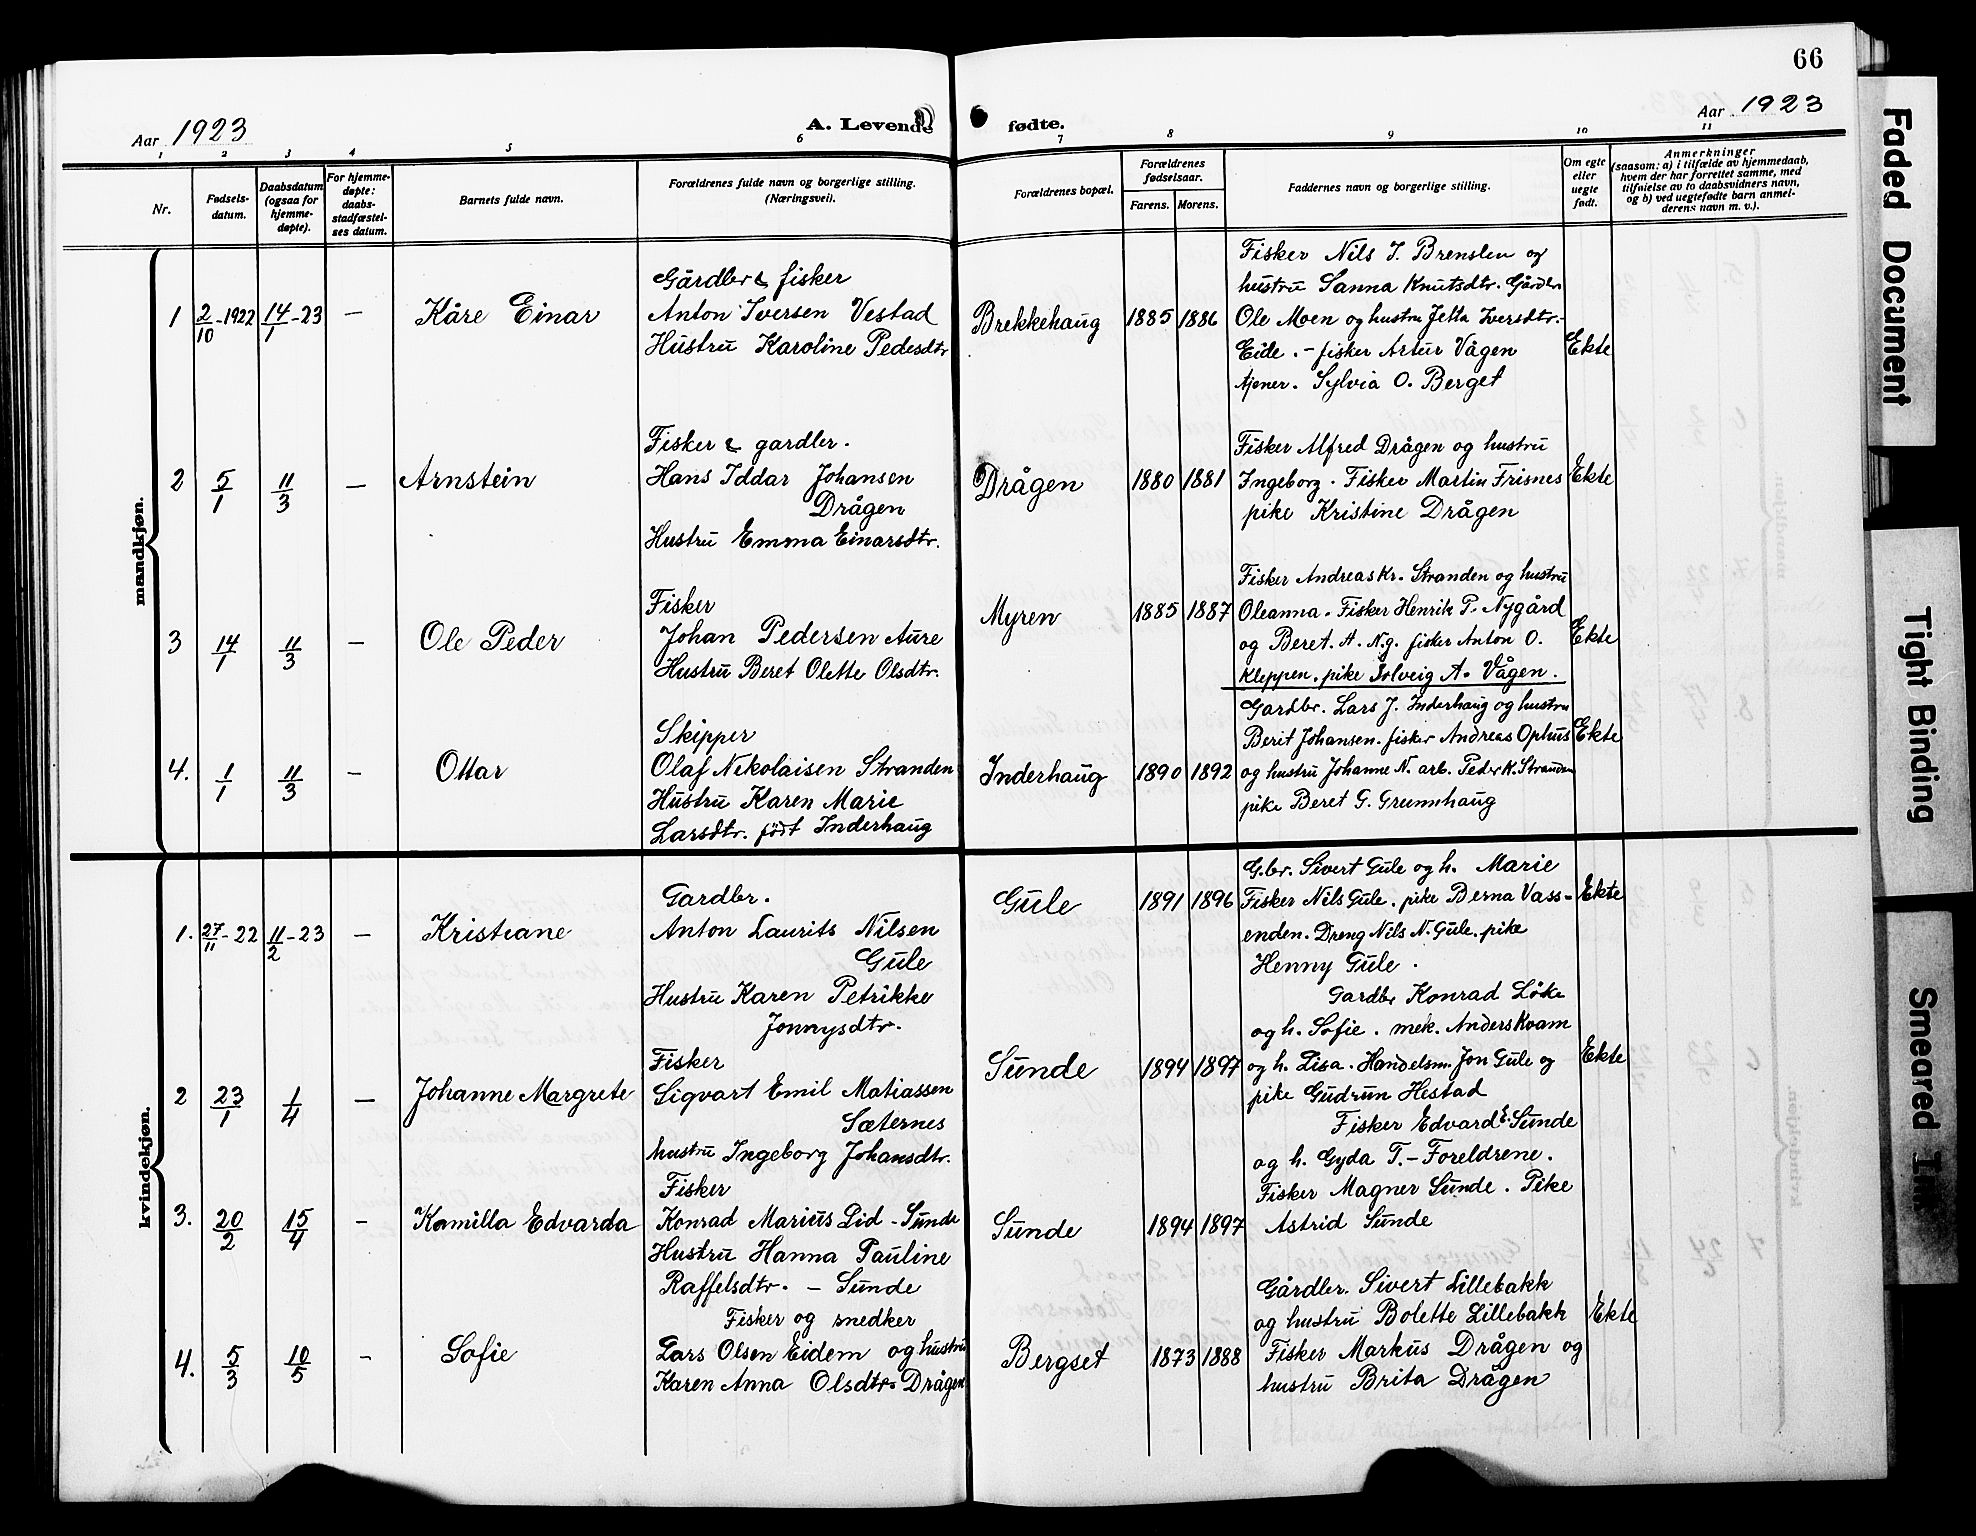 66
Aar 1923
A. Levende fødte.
Aar 1923
1 2 3 4 5 6 7 8 9 10 11
Nr.
Fødselsdatum.
Daabsdatum (ogsaa for hjemmedøpte).
For hjemmedøpte: daabsstadfæstelses datum.
Barnets fulde navn.
Forældrenes fulde navn og borgerlige stilling. (Næringsvei).
Forældrenes bopæl.
Forældrenes fødselsaar.
Farens. Morens.
Faddernes navn og borgerlige stilling.
Om egte eller uegte født.
Anmerkninger
(saasom: a) i tilfælde av hjemmedaab, hvem der har forrettet samme, med tilføielse av to daabsvidners navn, og b) ved uegtefødte barn anmelderens navn m. v.).
mandkjøn.
1 2/10-1922 14/1-23 — Kåre Einar
Gårdbr & fisker
Anton Iversen Vestad
Hustru Karoline Pedesdtr
Brekkehaug 1885 1886
Fisker Nils J. Brenslen og
hustru Sanna Knutsdtr. Gårdbr.
Ole Moen og hustru Jetta Iversdtr.-
Eide. - fisker Artur Vågen
tjener. Sylvia O. Berget
Ekte
2 5/1 11/3 — Arnstein
Fisker & gardbr.
Hans Iddar Johansen
Drågen
Hustru Emma Einarsdtr.
Drågen 1880 1881
Fisker Alfred Drågen og hustru
Ingeborg. Fisker Martin Frisnes
pike Kristine Drågen
Ekte
3 14/1 11/3 — Ole Peder
Fisker
Johan Pedersen Aure
Hustru Beret Olette Olsdtr.
Myren 1885 1887
Fisker Andreas Kr. Stranden og hustru
Oleanna. Fisker Henrik P. Nygård
og Beret. A. N.g. fisker Anton O.
Kleppen. pike Solveig A. Vågen.
Ekte
4. 1/1 11/3 — Ottar
Skipper
Olaf Nikolaisen Stranden
Hustru Karen Marie
Larsdtr. født Inderhaug
Inderhaug 1890 1892
Gardbr. Lars J. Inderhaug og hustru
Berit Johansen. fisker Andreas Ophus
og hustru Johanne N. arb. Peder K. Stranden
pike Beret G. Grunnhaug
Ekte
kvindekjøn.
1. 27/11-22 11/2-23 — Kristiane
Gardbr.
Anton Laurits Nilsen
Gule
Hustru Karen Petrikke
Jonnysdtr.
Gule 1891 1896
G.br. Sivert Gule og h. Marie
Fisker Nils Gule. pike Berna Vass-
enden. Dreng Nils N. Gule. pike
Henny Gule.
Ekte
2 23/1 1/4 — Johanne Margrete
Fisker
Sigvart Emil Matiassen
Sæternes
hustru Ingeborg Johansdtr.
Sunde 1894 1897
Gardbr Konrad Låke
og h. Sofie. mek. Anders Kvam
og h. Lisa. Handelsm. Jon Gule og
pike Gudrun Hestad
Ekte
3. 20/2 15/4 - Kamilla Edvarda
Fisker
Konrad Marius Lid - Sunde
Hustru Hanna Pauline
Raffelsdtr. - Sunde
Sunde 1894 1897
Fisker Edvard E. Sunde
og h. Gyda T. - Foreldrene.
Fisker Magner Sunde. Pike
Astrid Sunde
4. 5/3 10/5 - Sofie
Fisker og snedker
Lars Olsen Eidem og hustru
Karen Anna Olsdtr. Drågen
Bergset 1873 1888
Gårdbr. Sivert Lillebakk
og hustru Bolette Lillebakk
Fisker Markus Drågen og
hustru Brita Drågen
Ekte
Faded Document
Tight Binding
Smeared Ink